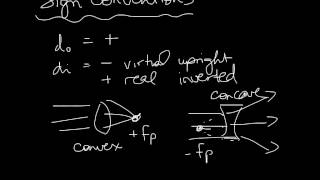 Sign Conventions
do = +
di = - virtual upright
+ real inverted
concave
+fp
convex
- fp